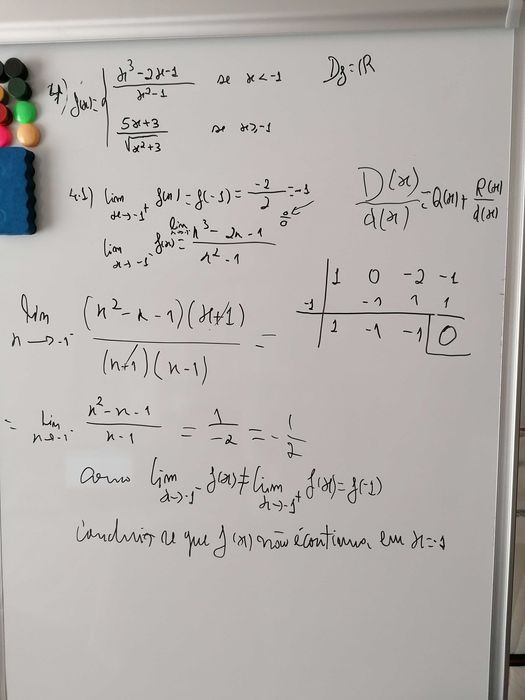 4) f(x) = { (x³ - 2x - 1)/(x² - 1) se x < -1 Df = ℝ
(5x + 3)/√(x² + 3) se x ≥ -1
4.1) lim x→-1⁺ f(x) = f(-1) = -2/2 = -1
D(x)/d(x) = Q(x) + R(x)/d(x)
lim x→-1⁻ f(x) = lim x→-1⁻ (x³ - 2x - 1)/(x² - 1) 0/0
1 0 -2 -1
-1 -1 1 1
1 -1 -1 0
lim x→-1⁻ (x² - x - 1)(x + 1)/((x + 1)(x - 1)) =
= lim x→-1⁻ (x² - x - 1)/(x - 1) = 1/-2 = -1/2
como lim x→-1⁻ f(x) ≠ lim x→-1⁺ f(x) = f(-1)
Conclui-se que f(x) não é contínua em x = -1